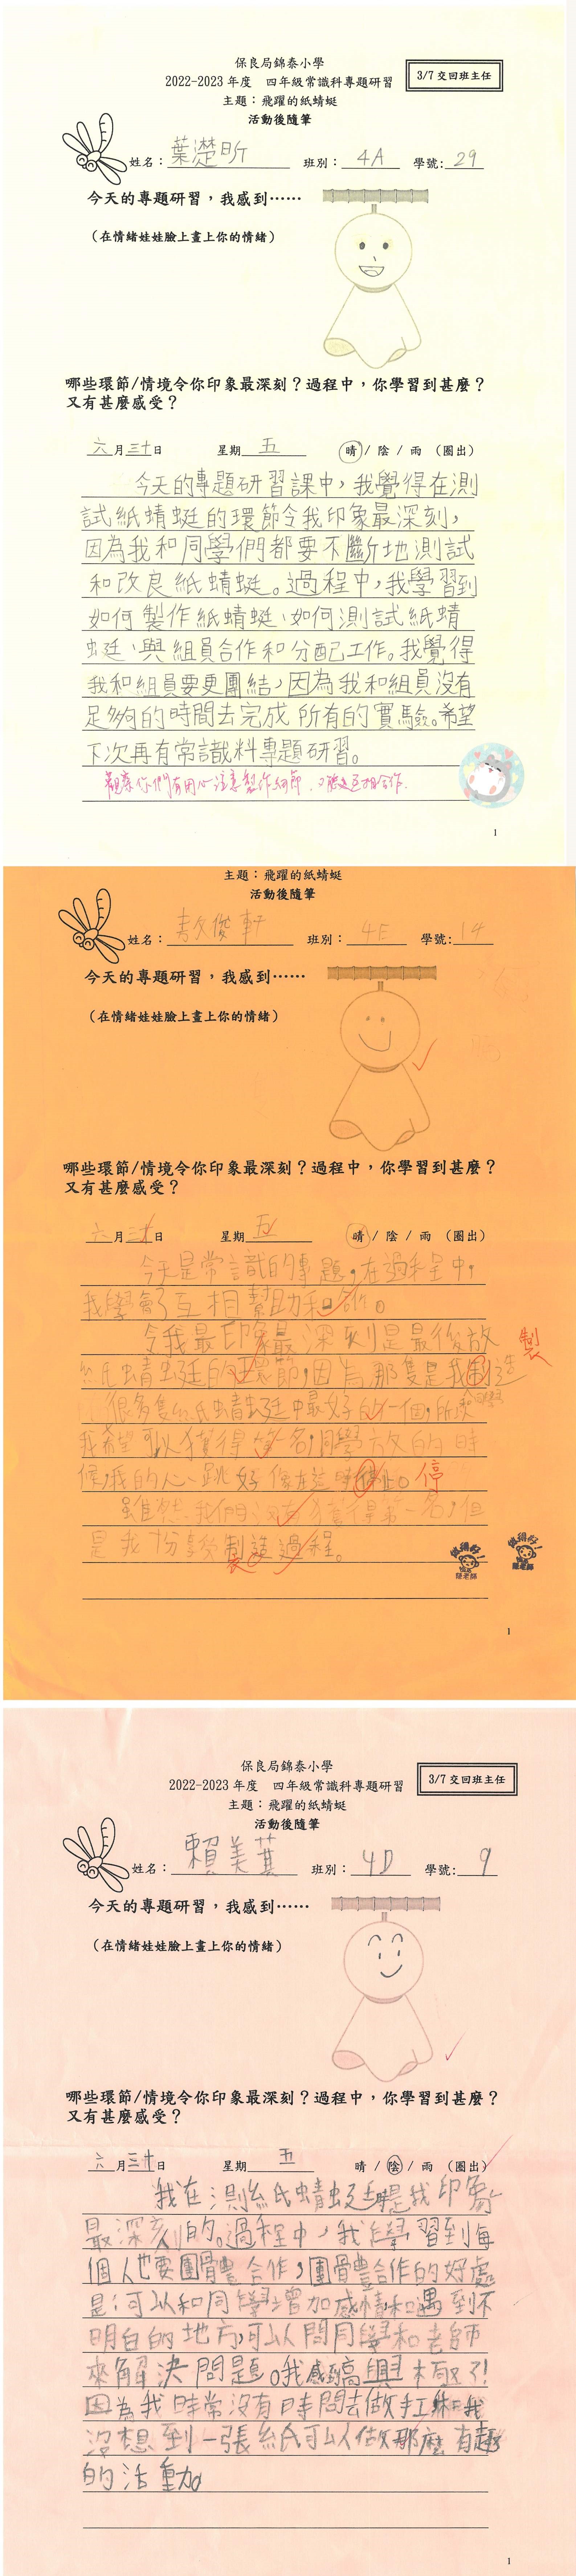 保良局錦泰小學
2022-2023年度 四年級常識科專題研習
3/7交回班主任
主題：飛躍的紙蜻蜓
活動後隨筆
姓名：葉濋昕 班別：4A 學號：29
今天的專題研習，我感到……
（在情緒娃娃臉上畫上你的情緒）
哪些環節/情境令你印象最深刻？過程中，你學習到甚麼？
又有甚麼感受？
六月三十日 星期五 晴/陰/雨（圈出）
今天的專題研習課中，我覺得在測
試紙蜻蜓的環節令我印象最深刻，
因為我和同學們都要不斷地測試
和改良紙蜻蜓。過程中，我學習到
如何製作紙蜻蜓、如何測試紙蜻
蜓、與組員合作和分配工作。我覺得
我和組員要更團結，因為我和組員沒有
足夠的時間去完成所有的實驗。希望
下次再有常識科專題研習。
觀察你們有用心注意製作細節，又能互相合作。
1
主題：飛躍的紙蜻蜓
活動後隨筆
姓名：敖俊軒 班別：4E 學號：14
今天的專題研習，我感到……
（在情緒娃娃臉上畫上你的情緒）
哪些環節/情境令你印象最深刻？過程中，你學習到甚麼？
又有甚麼感受？
六月三十日 星期五 晴/陰/雨（圈出）
今天是常識的專題，在過程中，
我學會了互相幫助和合作。
令我最印象最深刻是最後放
紙蜻蜓的環節，因為那隻是我制造
製
很多隻紙蜻蜓中最好的一個，所以
我希望可以獲得第一名，同學放的時
候，我的心跳好像在這時停止。
停
雖然我們沒有獲得第一名，但
是我十份享受制造過程。
製
值得好！
陸老師
值得好！
陸老師
1
保良局錦泰小學
2022-2023年度 四年級常識科專題研習
3/7交回班主任
主題：飛躍的紙蜻蜓
活動後隨筆
姓名：賴美萁 班別：4D 學號：9
今天的專題研習，我感到……
（在情緒娃娃臉上畫上你的情緒）
哪些環節/情境令你印象最深刻？過程中，你學習到甚麼？
又有甚麼感受？
六月三十日 星期五 晴/陰/雨（圈出）
我在測紙蜻蜓時是我印象
最深刻的。過程中，我學習到每
個人也要團體合作，團體合作的好處
是：可以和同學增加感情和遇到不
明白的地方，可以問同學和老師
來解決問題。我感到高興極了！
因為我時常沒有時間去做手工和我
沒想到一張紙可以做那麼有趣
的活動。
1